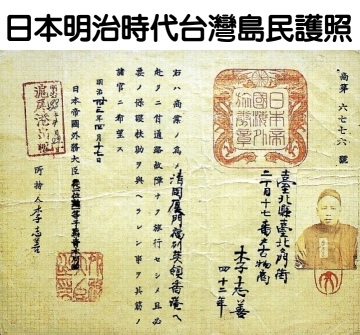 日本明治時代台灣島民護照
商第六七七六號
日本帝國海外旅券章
臺北縣臺北北門街
二丁目十七番戶古物商
李志善
四十二年
右ハ商業ノ為メ清国厦門福州英領香港ヘ
赴クニ付通路故障ナク旅行セシメ且必
要ノ保護扶助ヲ與ヘラレン事ヲ其筋ノ
諸官ニ希望ス
明治卅三年四月十七日
日本帝國外務大臣
所持人 李志善